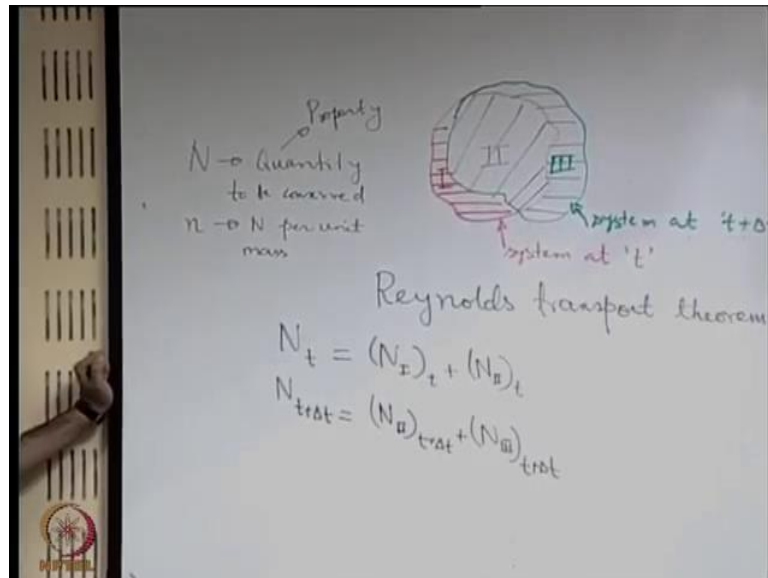 Property
N → Quantity
to be conserved
n → N per unit
mass
I
II
III
system at 't+Δ
system at 't'
Reynolds transport theorem
N_t = (N_I)_t + (N_II)_t
N_t+Δt = (N_II)_t+Δt + (N_III)_t+Δt
NPTEL